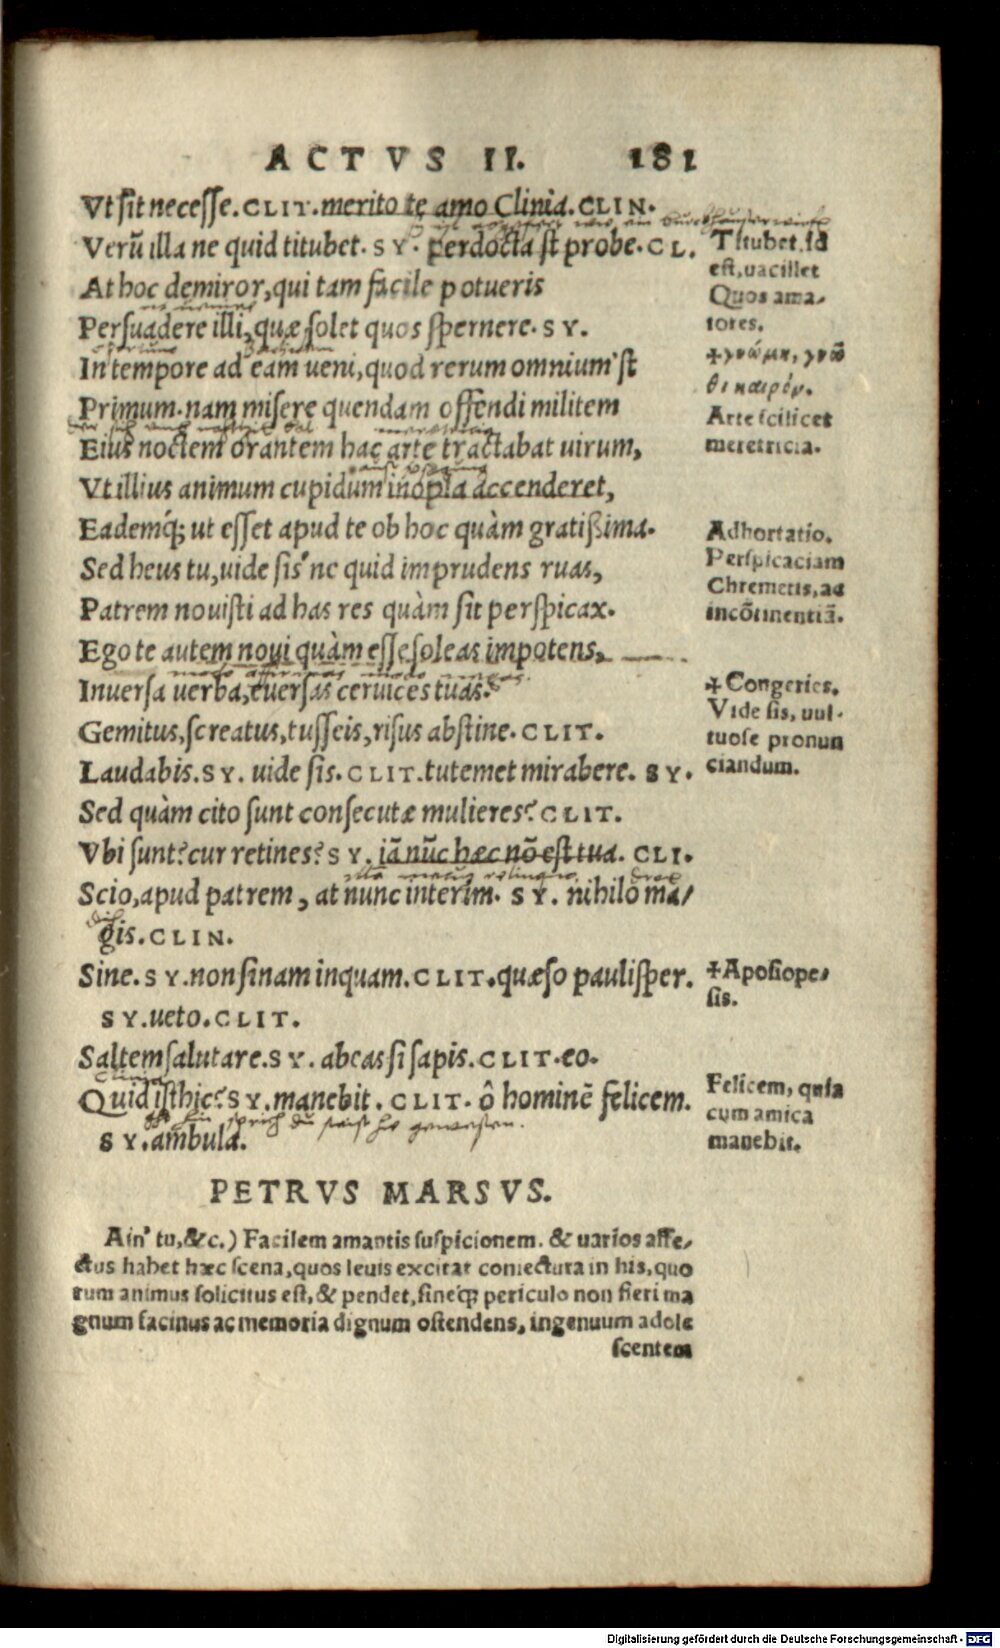 ACTVS II. 181
Vt sit necesse. CLIT. merito te amo Clinia. CLIN.
Verũ illa ne quid titubet. SY. perdocta st probe. CL.
At hoc demiror, qui tam facile potueris
Persuadere illi, quæ solet quos spernere. SY.
In tempore ad eam ueni, quod rerum omnium' st
Primum. nam misere quendam offendi militem
Eius noctem orantem hac arte tractabat uirum,
Vt illius animum cupidum inopia accenderet,
Eademq́; ut esset apud te ob hoc quàm gratißima.
Sed heus tu, uide sis' ne quid imprudens ruas,
Patrem nouisti ad has res quàm sit perspicax.
Ego te autem noui quàm esse soleas impotens,
Inuersa uerba, euersas ceruices tuas.
Gemitus, screatus, tusseis, risus abstine. CLIT.
Laudabis. SY. uide sis. CLIT. tutemet mirabere. SY.
Sed quàm cito sunt consecutæ mulieres? CLIT.
Vbi sunt? cur retines? SY. iã nũc hæc nõ est tua. CLI.
Scio, apud patrem, at nunc interim. SY. nihilo ma/
gis. CLIN.
Sine. SY. non sinam inquam. CLIT. quæso paulisper.
SY. ueto. CLIT.
Saltem salutare. SY. abeas si sapis. CLIT. eo.
Quid isthic? SY. manebit. CLIT. ô hominẽ felicem.
SY. ambula.
Titubet. id
est, uacillet
Quos ama-
tores.
✢γνώμη, γνῶ
θι καιρόν.
Arte scilicet
meretricia.
Adhortatio.
Perspicaciam
Chremetis, ac
incõtinentiã.
✢Congeries.
Vide sis, uul-
tuose pronun
ciandum.
✢Aposiope/
sis.
Felicem, quia
cum amica
manebit.
PETRVS MARSVS.
Ain' tu, &c.) Facilem amantis suspicionem. & uarios affe/
ctus habet hæc scena, quos leuis excitat coniectura in his, quo
rum animus solicitus est, & pendet, sineq́; periculo non fieri ma
gnum facinus ac memoria dignum ostendens, ingenuum adole
scentem
Digitalisierung gefördert durch die Deutsche Forschungsgemeinschaft - DFG